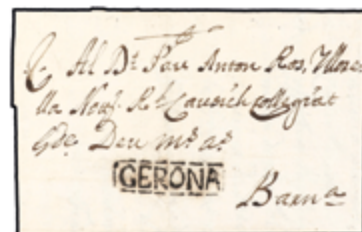 Al Dr Pau Anton Ros,
Real Causich collegiat
Gde Deu ms as
GERONA
Barna